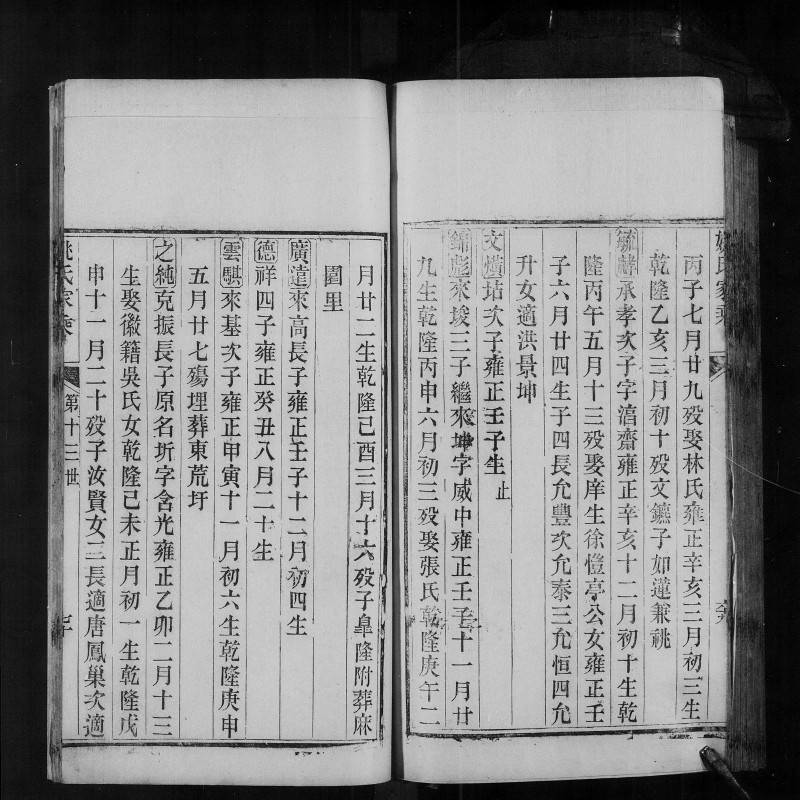 姚氏家乘
丙子七月廿九歿娶林氏雍正辛亥三月初三生
乾隆乙亥三月初十歿文鑣子如蓮兼祧
毓麟承孝次子字滄齋雍正辛亥十二月初十生乾
隆丙午五月十三歿娶庠生徐愷亭公女雍正壬
子六月廿四生子四長允豐次允泰三允恒四允
升女適洪景坤
文黌坫次子雍正壬子生止
錦彪來埈三子繼來坤字威中雍正壬子十一月廿
九生乾隆丙申六月初三歿娶張氏乾隆庚午二
月廿二生乾隆己酉三月十六歿子皐隆附葬麻
園里
廣達來高長子雍正壬子十二月初四生
德祥四子雍正癸丑八月二十生
雲騏來基次子雍正甲寅十一月初六生乾隆庚申
五月廿七殤埋葬東荒圩
之純克振長子原名圻字含光雍正乙卯二月十三
生娶徽籍吳氏女乾隆己未正月初一生乾隆戊
申十一月二十歿子汝賢女三長適唐鳳巢次適
姚氏家乘
第十三世